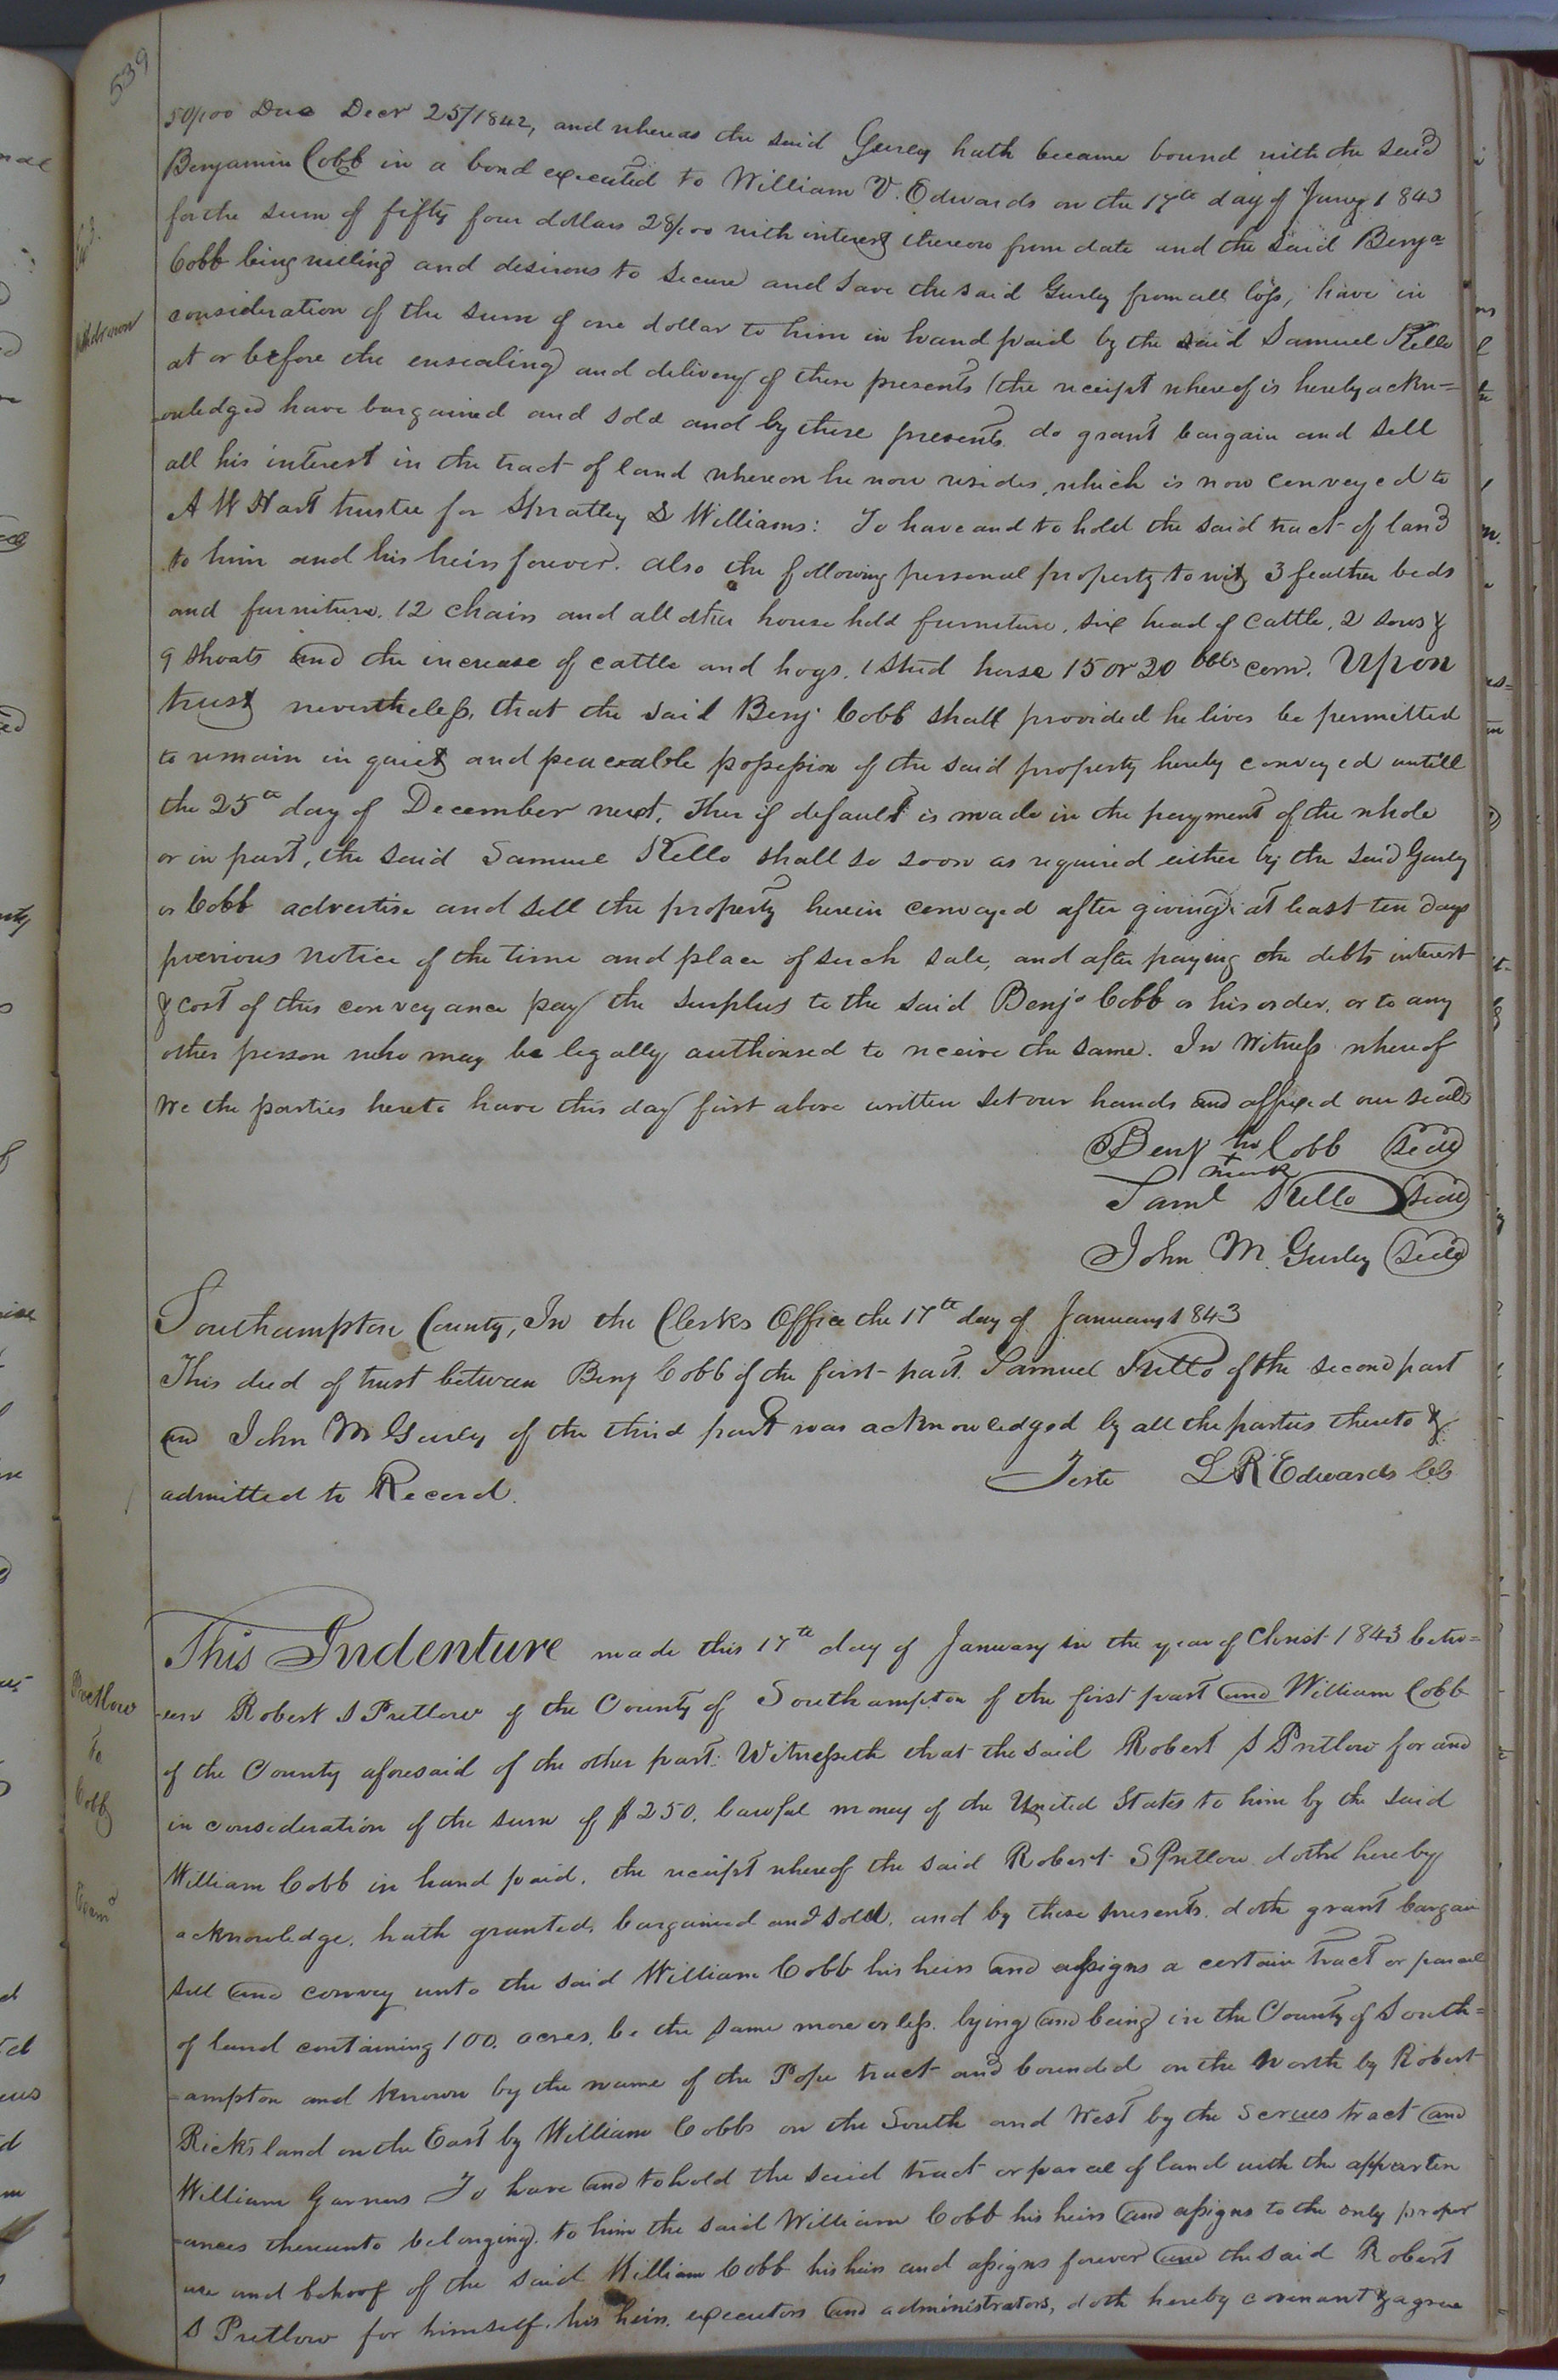 539
50/100 Due Decr 25/1842, and whereas the said Gurley hath became bound with the said
Benjamin Cobb in a bond executed to William V. Edwards on the 17th day of Jany 1843
for the sum of fifty four dollars 28/100 with interest thereon from date and the said Benja
Cobb being willing and desirous to secure and save the said Gurley from all loss, have in
consideration of the sum of one dollar to him in hand paid by the said Samuel Kello
at or before the ensealing and delivery of these presents (the receipt whereof is hereby ackn=
=owledged have bargained and sold and by these presents do grant bargain and sell
all his interest in the tract of land whereon he now resides, which is now conveyed to
A W Hart trustee for Spratley & Williams: To have and to hold the said tract of land
to him and his heirs forever. also the following personal property to wit, 3 feather beds
and furniture. 12 chairs and all other house hold furniture, six head of cattle, 2 sows &
9 shoats and the increase of cattle and hogs. 1 stud horse 15 or 20 bbls corn. Upon
trust nevertheless, that the said Benj Cobb shall provided he lives be permitted
to remain in quiet and peaceable possession of the said property hereby conveyed untill
the 25th day of December next. Then if default is made in the payment of the whole
or in part, the said Samuel Kello shall so soon as required either by the said Gurley
or Cobb advertise and sell the property herein conveyed after giving at least ten days
previous notice of the time and place of such sale, and after paying the debts interest
& cost of this conveyance pay the surplus to the said Benja Cobb or his order, or to any
other person who may be legally authorised to receive the same. In Witness whereof
We the parties hereto have this day first above written set our hands and affixed our seals
Benj his + mark Cobb (Seal)
Saml Kello (Seal)
John M. Gurley (Seal)
Southampton County, In the Clerks Office the 17th day of January 1843
This deed of trust between Benj Cobb of the first part. Samuel Kello of the second part
and John M Gurley of the third part was acknowledged by all the parties thereto &
admitted to Record.
Teste L R Edwards CC
Pretlow
To
Cobb
Examd
This Indenture made this 17th day of January in the year of Christ 1843 betw=
=een Robert S Pretlow of the County of Southampton of the first part and William Cobb
of the County aforesaid of the other part: Witnesseth that the said Robert S Pretlow for and
in consideration of the sum of $250. lawful money of the United States to him by the said
William Cobb in hand paid, the receipt whereof the said Robert S Pretlow doth hereby
acknowledge, hath granted, bargained and sold, and by these presents doth grant bargain
sell and convey unto the said William Cobb his heirs and assigns a certain tract or parcel
of land containing 100. acres, be the same more or less. lying and being in the County of South=
=ampton and known by the name of the Pope tract and bounded on the North by Robert
Ricks land on the East by William Cobbs on the South and West by the tract and
William Garners To have and to hold the said tract or parcel of land with the apparten
=ances thereunto belonging, to him the said William Cobb his heirs and assigns to the only proper
use and behoof of the said William Cobb his heirs and assigns forever and the said Robert
S Pretlow for himself, his heirs, executors and administrators, doth hereby covenant & agree